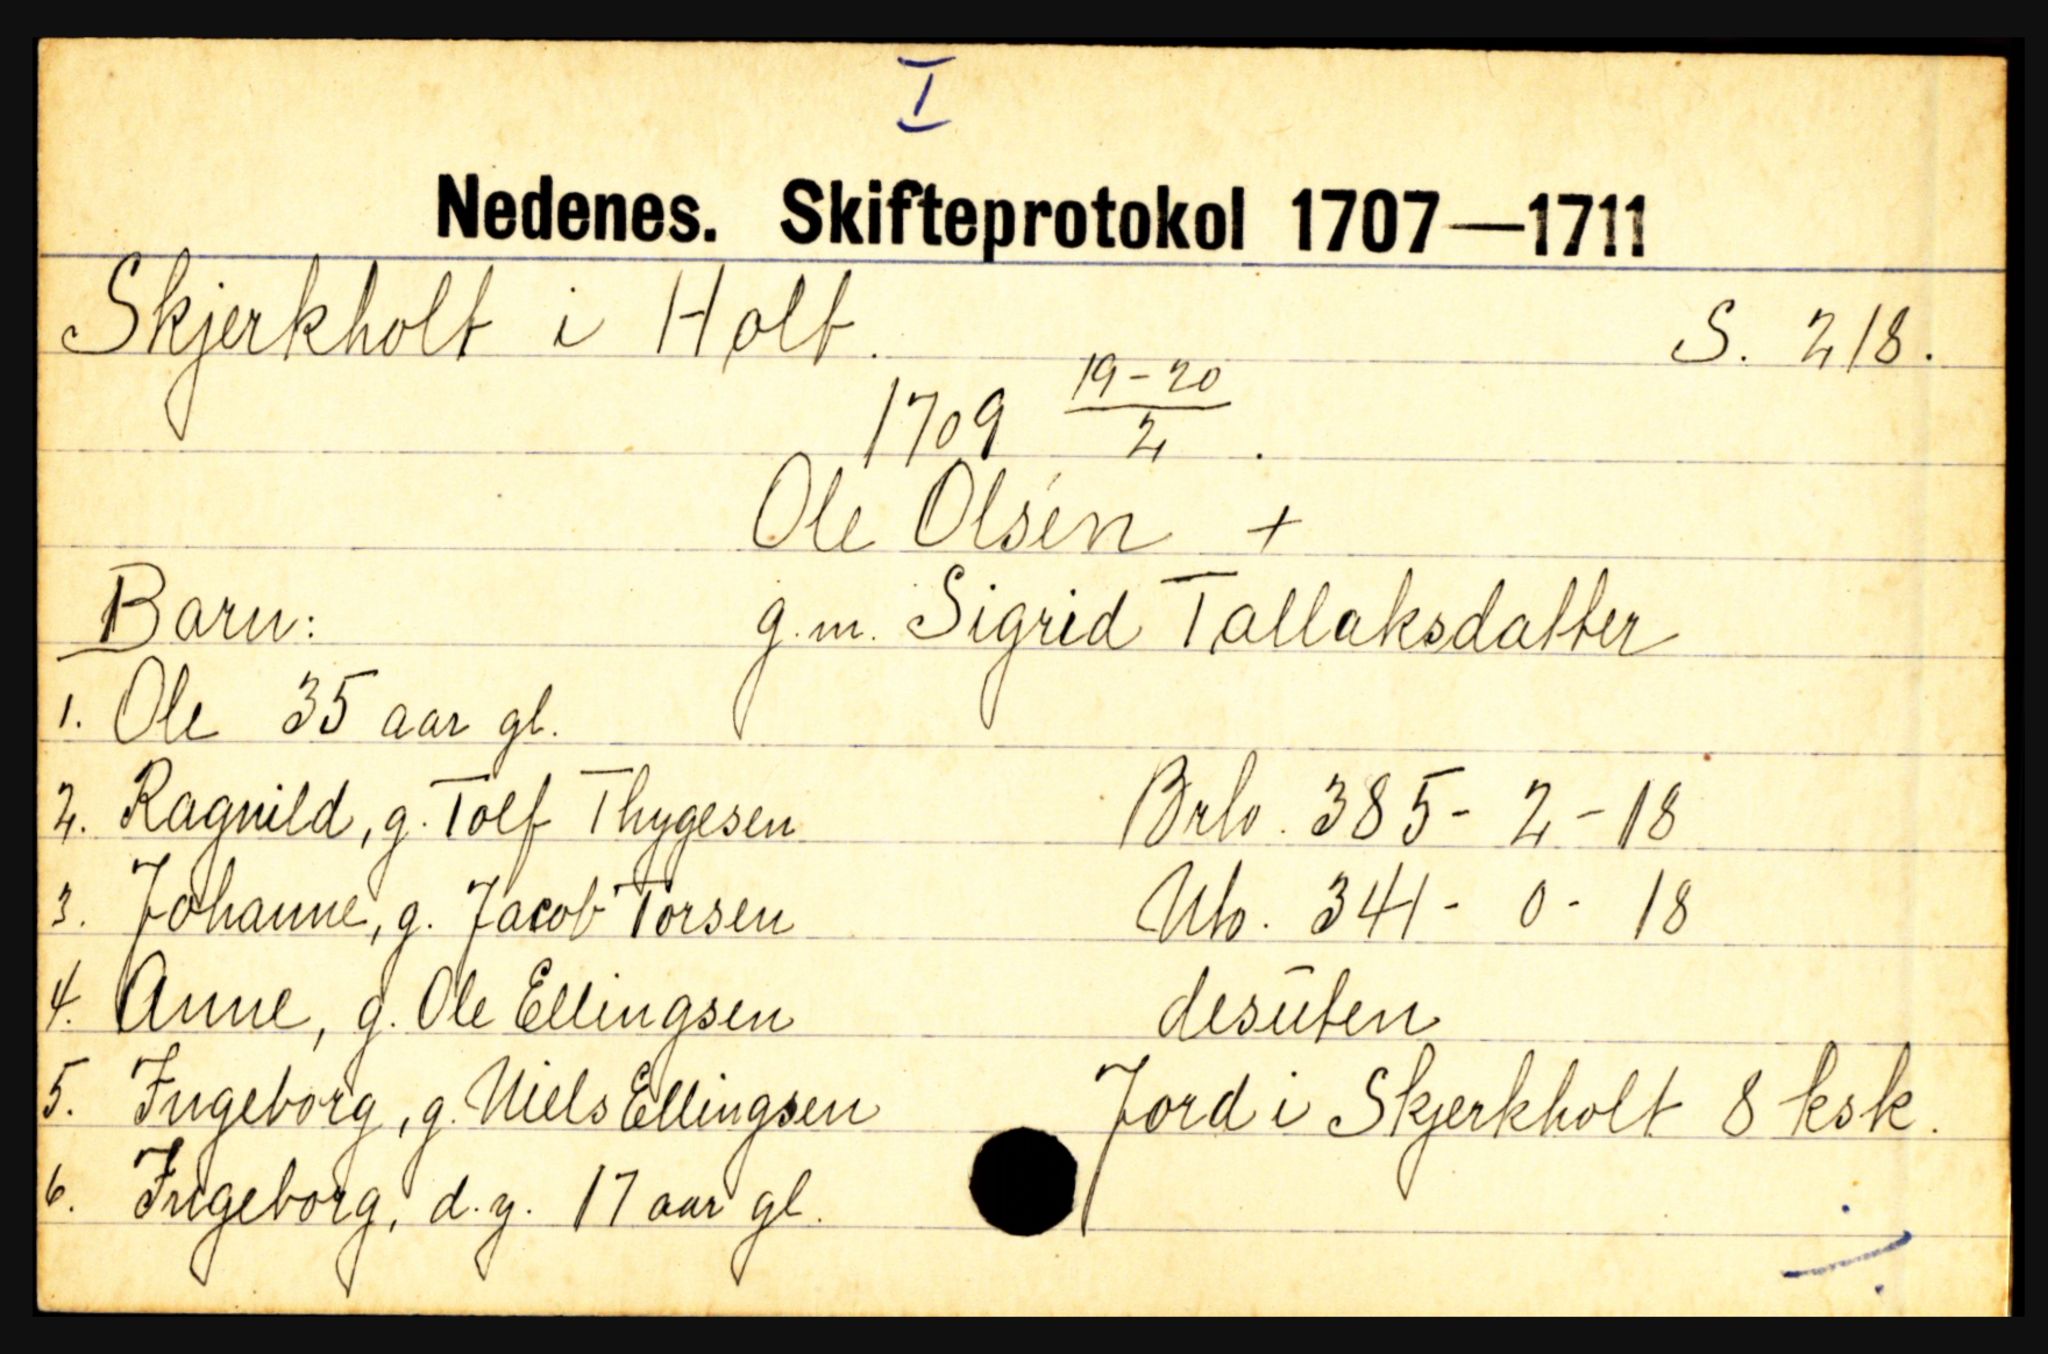 I
Nedenes. Skifteprotokol 1707—1711
Skjerkholt i Holt. S. 218.
1709 19-20/2.
Ole Olsen +
Barn: g.m. Sigrid Tallaksdatter
1. Ole 35 aar gl.
2. Ragnild, g. Tolf Thygesen Brlo. 385- 2-18
3. Johanne, g. Jacob Torsen Nlo. 341- 0- 18
4. Anne, g. Ole Ellingsen desuten
5. Ingeborg, g. Niels Ellingsen Jord i Skjerkholt 8 ksk.
6. Ingeborg, d.y. 17 aar gl.